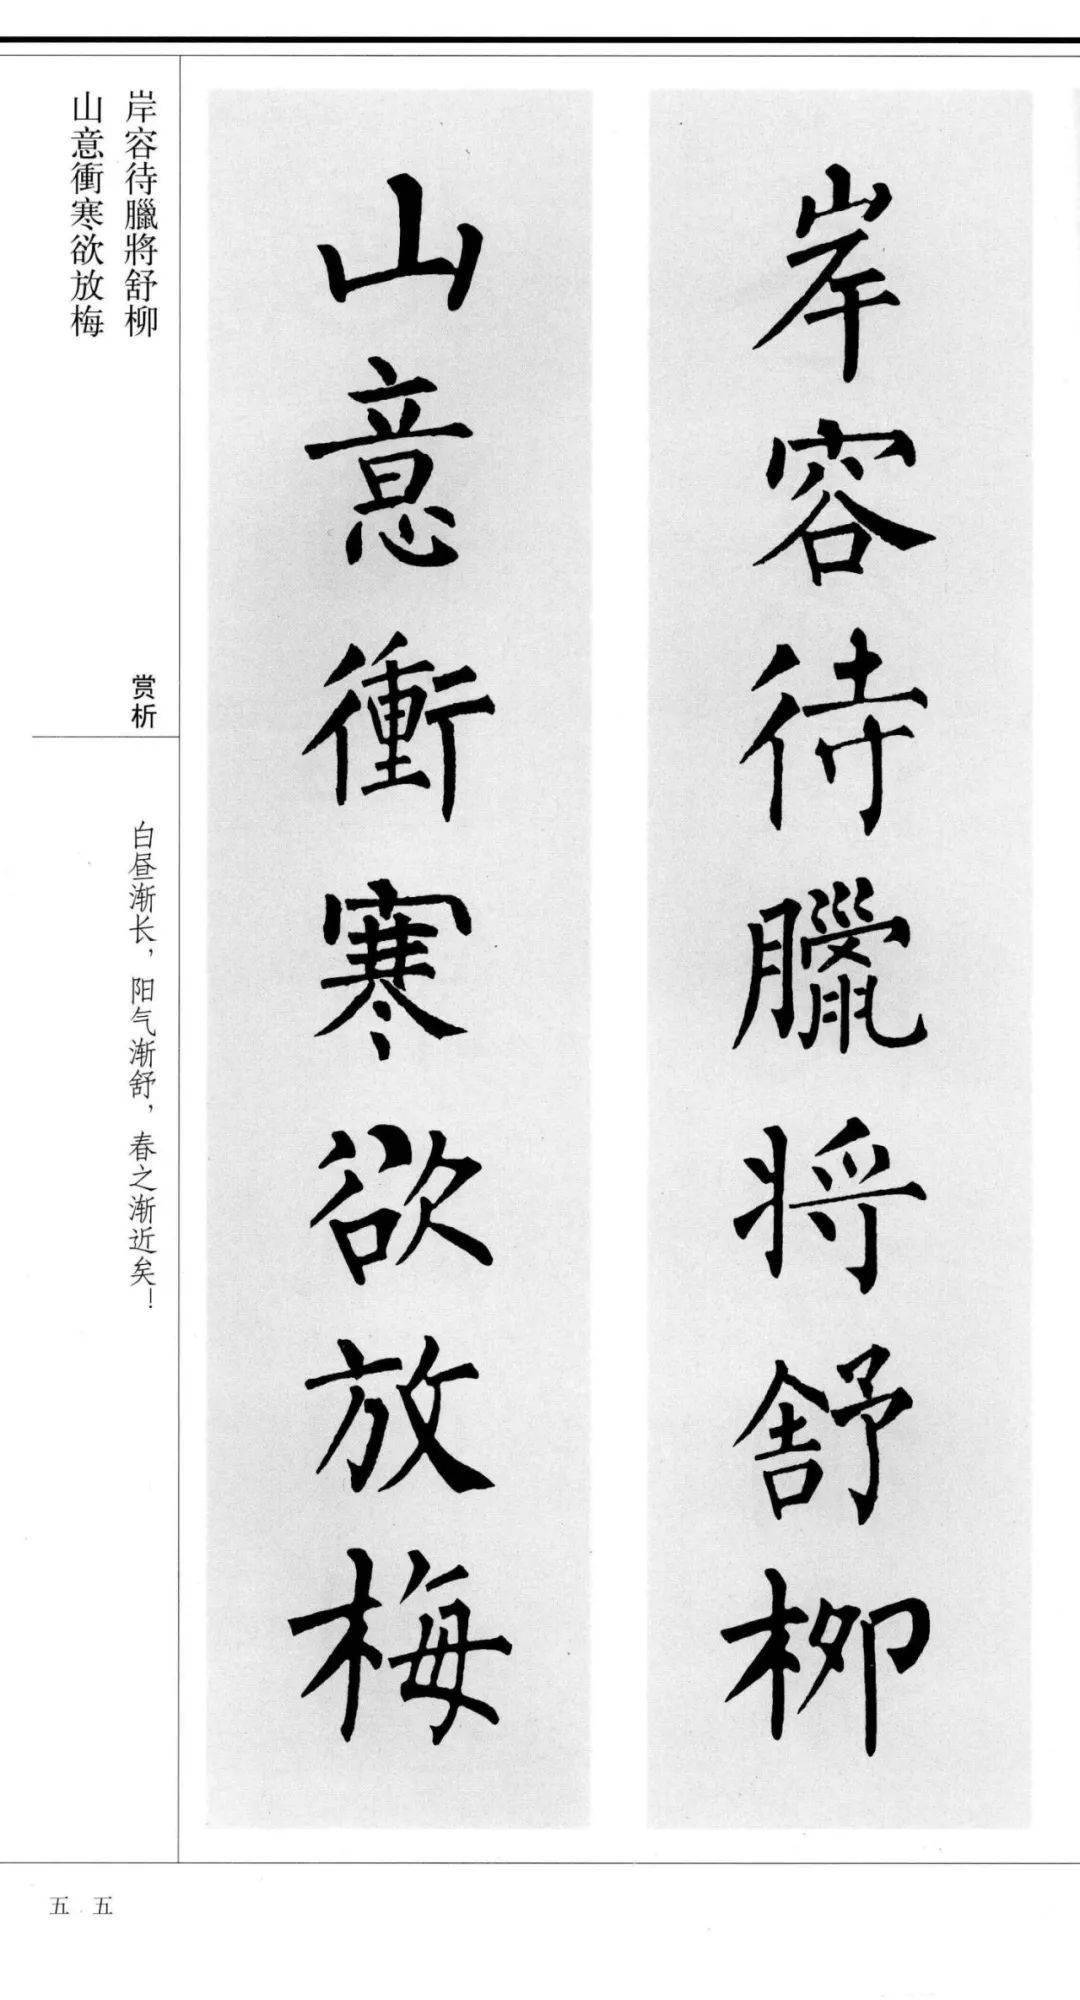 岸容待臘將舒柳
山意衝寒欲放梅
岸容待臘將舒柳
山意衝寒欲放梅
赏析
白昼渐长，阳气渐舒，春之渐近矣！
五五